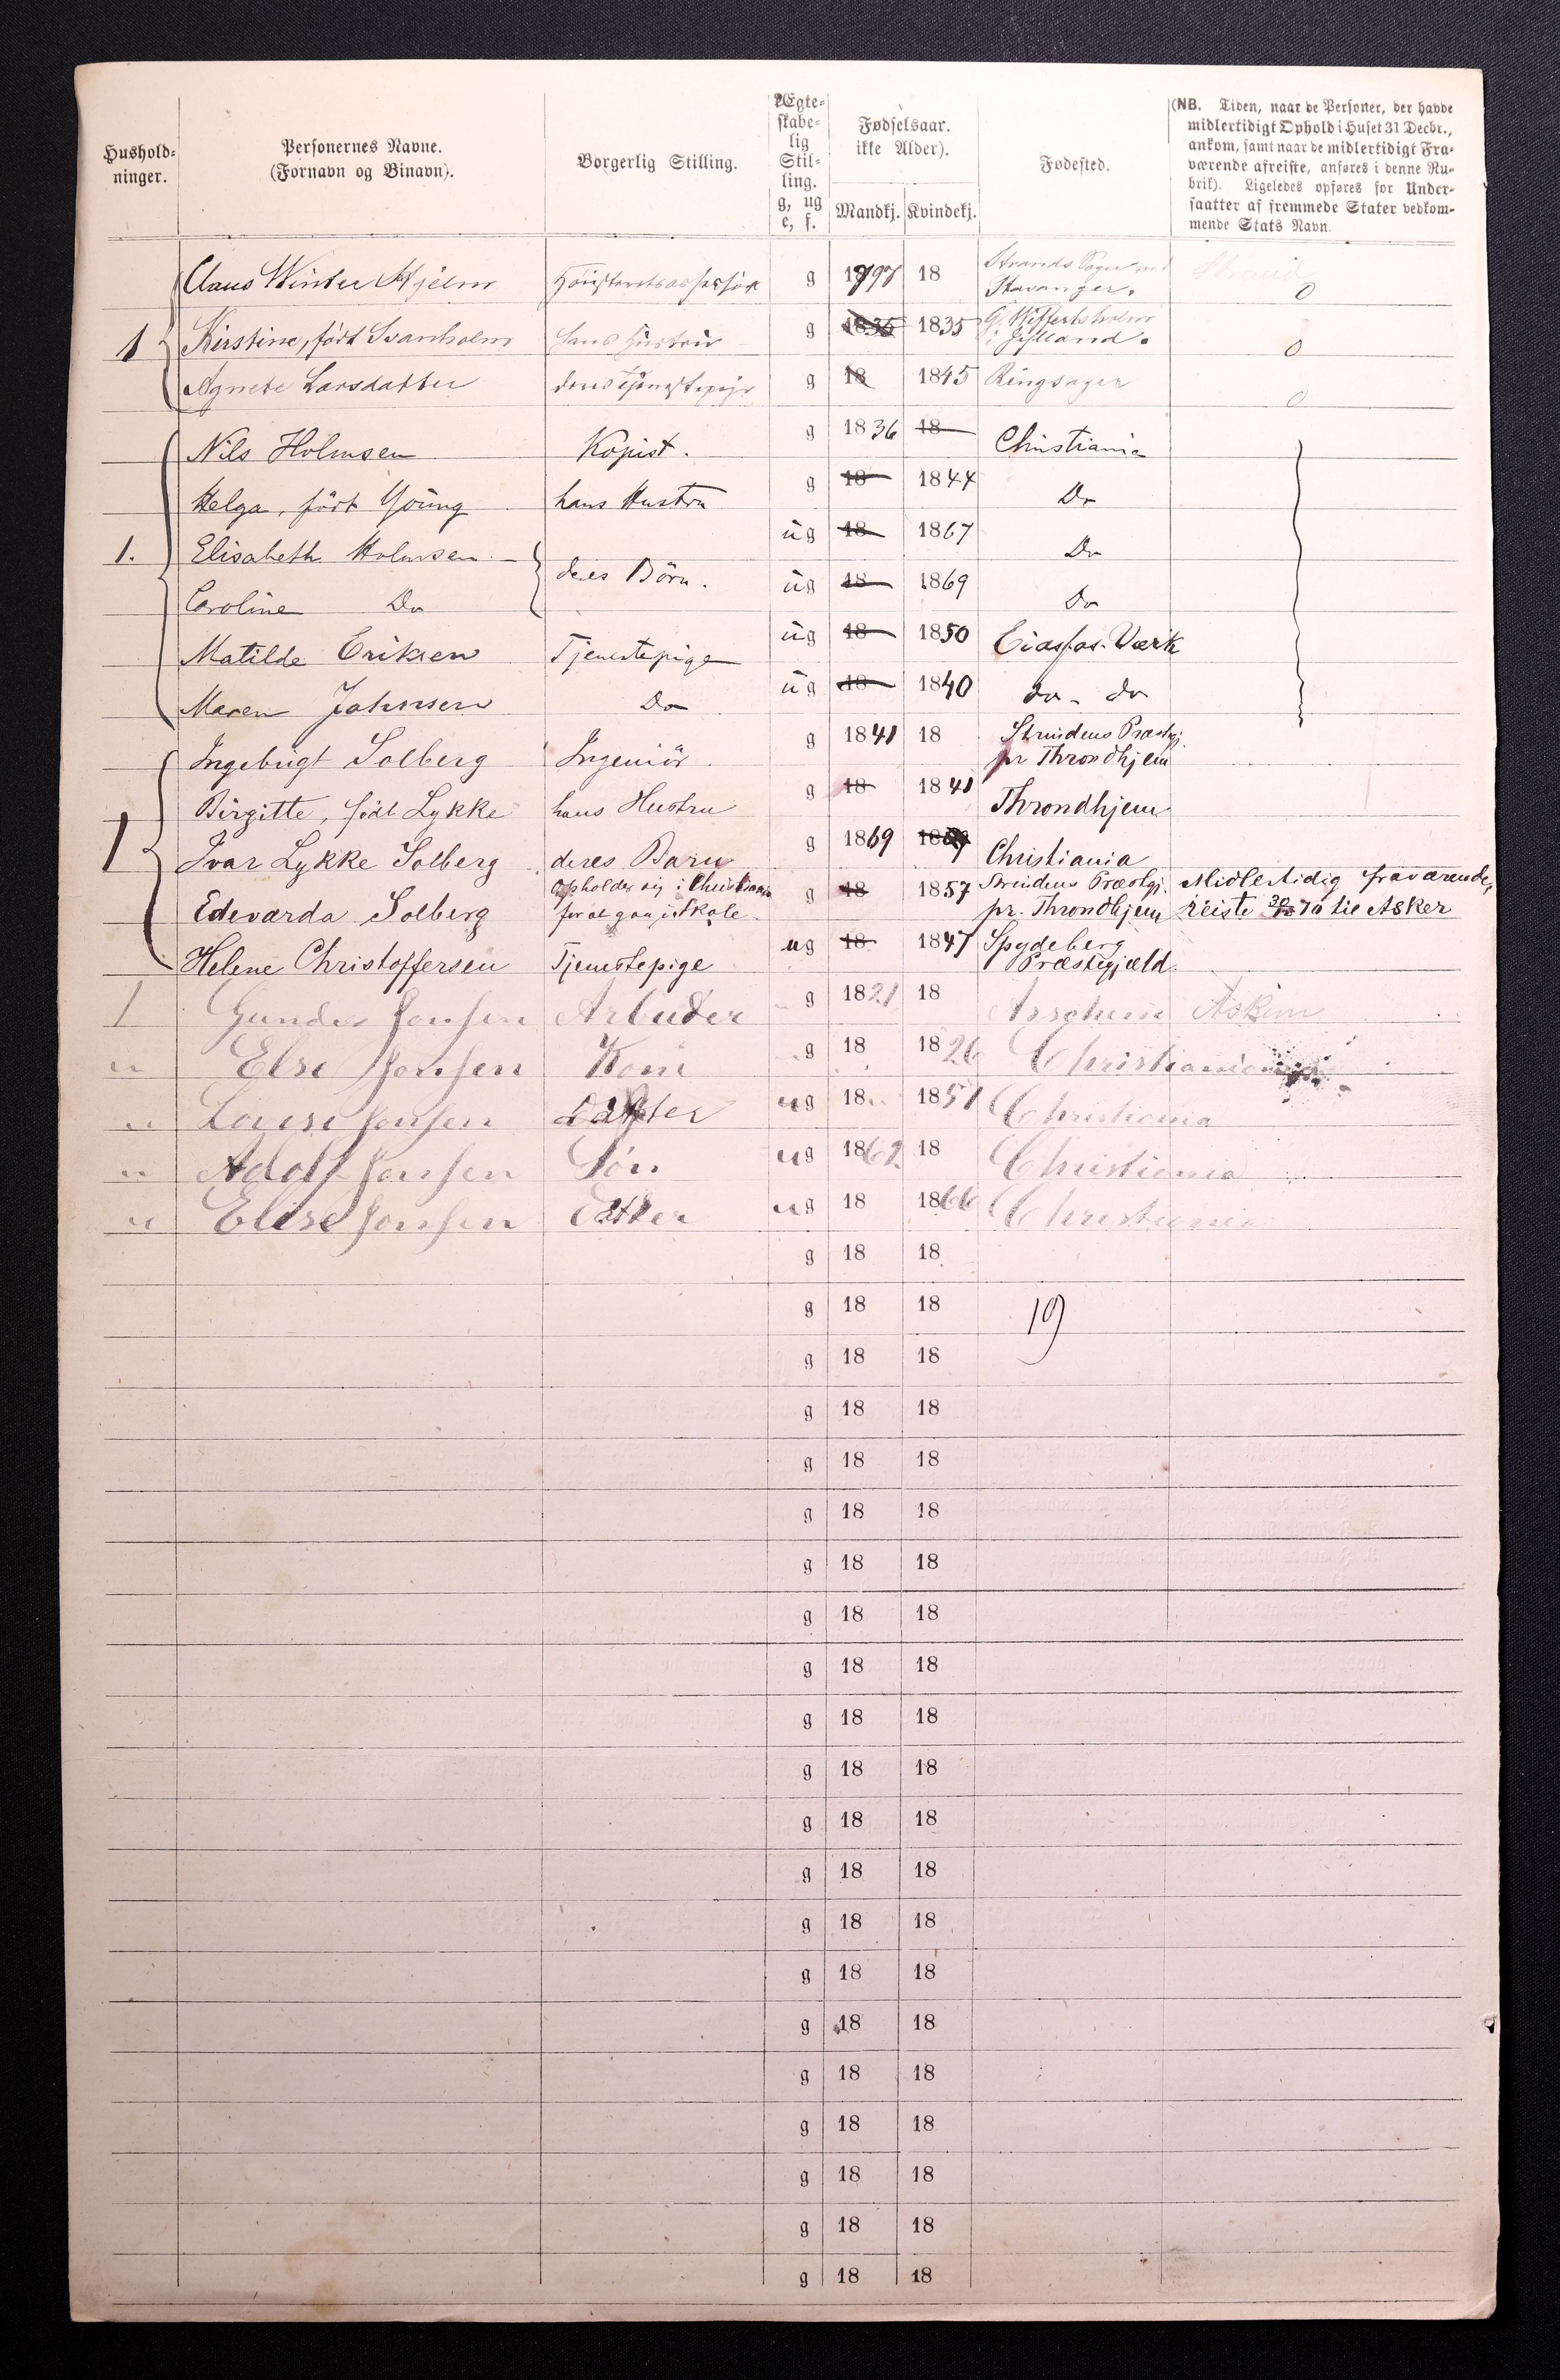 Hushold-
ninger.
Personernes Navne.
(Fornavn og Binavn).
Borgerlig Stilling.
Ægte-
skabe-
lig
Stil-
ling.
g, ug
e, f.
Fødselsaar.
ikke Alder).
Mandkj. Kvindekj.
Fødested.
(NB. Tiden, naar de Personer, der havde
midlertidigt Ophold i Huset 31 Decbr.,
ankom, samt naar de midlertidigt Fra-
værende afreiste, anføres i denne Ru-
brik). Ligeledes opføres for Under-
saatter af fremmede Stater vedkom-
mende Stats Navn.
Claus Winter Hjelm Høiesteretsassessor g 1797 18 Strands Sogn
Stavanger. 0
1 Kirstine, født Svanholm hans Hustru g 1835 1835
Jylland. 0
Agnete Larsdatter deres Tjenestepige g 18 1845 Ringsager 0
Nils Holmsen Kopist. g 1836 18 Christiania
Helga, født Young hans Hustru g 18 1844 Do
1. Elisabeth Holmsen deres Børn. ug 18 1867 Do
Caroline Do ug 18 1869 Do
Matilde Eriksen Tjenestepige ug 18 1850 Værk
Maren Johnsen Do ug 18 1840 do - do
Ingebrigt Solberg Ingeniör g 1841 18 Strindens Præstgj.
pr Throndhjem
Birgitte, født Lykke hans Hustru g 18 1841 Throndhjem
1 Ivar Lykke Solberg deres Barn g 1869 1869 Christiania
Edevarda Solberg opholder sig i Christiania
for at gaa i Skole g 18 1857 Strindens Præstgj.
pr. Throndhjem Midlertidig fraværende,
reiste 30/12 70 til Asker
Helene Christoffersen Tjenestepige ug 18 1847 Spydeberg
Præstegjæld.
1 Gunder Jensen Arbeider g 1821 18 Askim
" Else Jensen Kone g 18 1826 Christiania
" Louise Jensen Datter ug 18 1851 Christiania
" Adolf Jensen Søn ug 1862 18 Christiania
" Elise Jensen Datter ug 18 1866 Christiania
g 18 18
g 18 18 19)
g 18 18
g 18 18
g 18 18
g 18 18
g 18 18
g 18 18
g 18 18
g 18 18
g 18 18
g 18 18
g 18 18
g 18 18
g 18 18
g 18 18
g 18 18
g 18 18
g 18 18
g 18 18
g 18 18